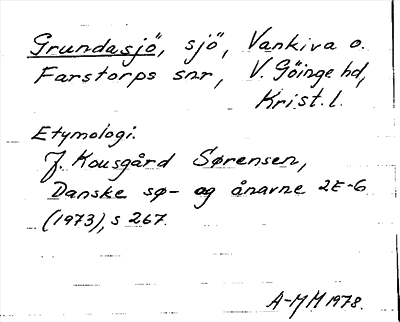 Grundasjö, sjö, Vankiva o.
Farstorps snr, V. Göinge hd,
Krist. l.
Etymologi.
J. Kousgård Sørensen,
Danske sø- og ånavne 2E-G
(1973), s 267.
A-MM 1978.